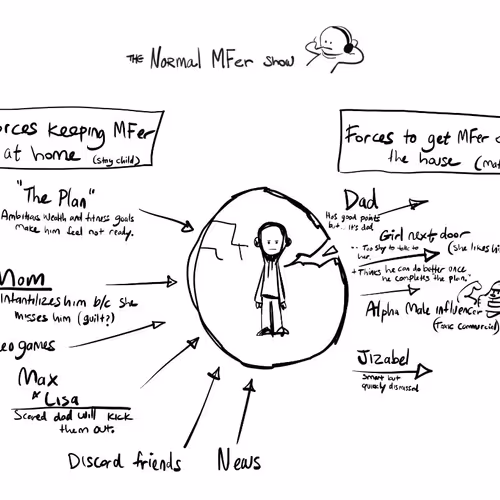 THE Normal MFer Show
orces keeping MFer
at home (stay child)
"The Plan"
Ambitious wealth and fitness goals
make him feel not ready.
Mom
Infantilizes him b/c she
misses him (guilt?)
eo games
Max
& Lisa
Scared dad will kick
them out.
Discord friends
News
Forces to get MFer o
the house (mat
Dad
Has good points
but... it's dad
Girl next door
-- Too shy to talk to
her.
(She likes hi
+ Thinks he can do better once
he completes the plan."
Alpha Male influencer
(Toxic commercial)
Jizabel
Smart but
quickly dismissed